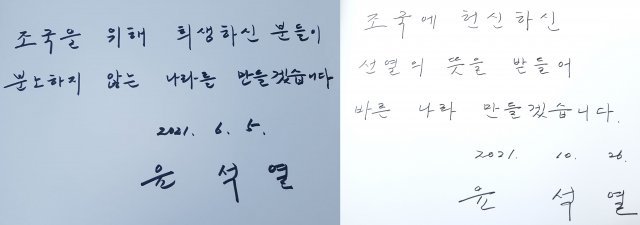 조국을 위해 희생하신 분들이
분노하지 않는 나라를 만들겠습니다
2021. 6. 5.
윤석열
조국에 헌신하신
선열의 뜻을 받들어
바른 나라 만들겠습니다.
2021. 10. 26.
윤석열